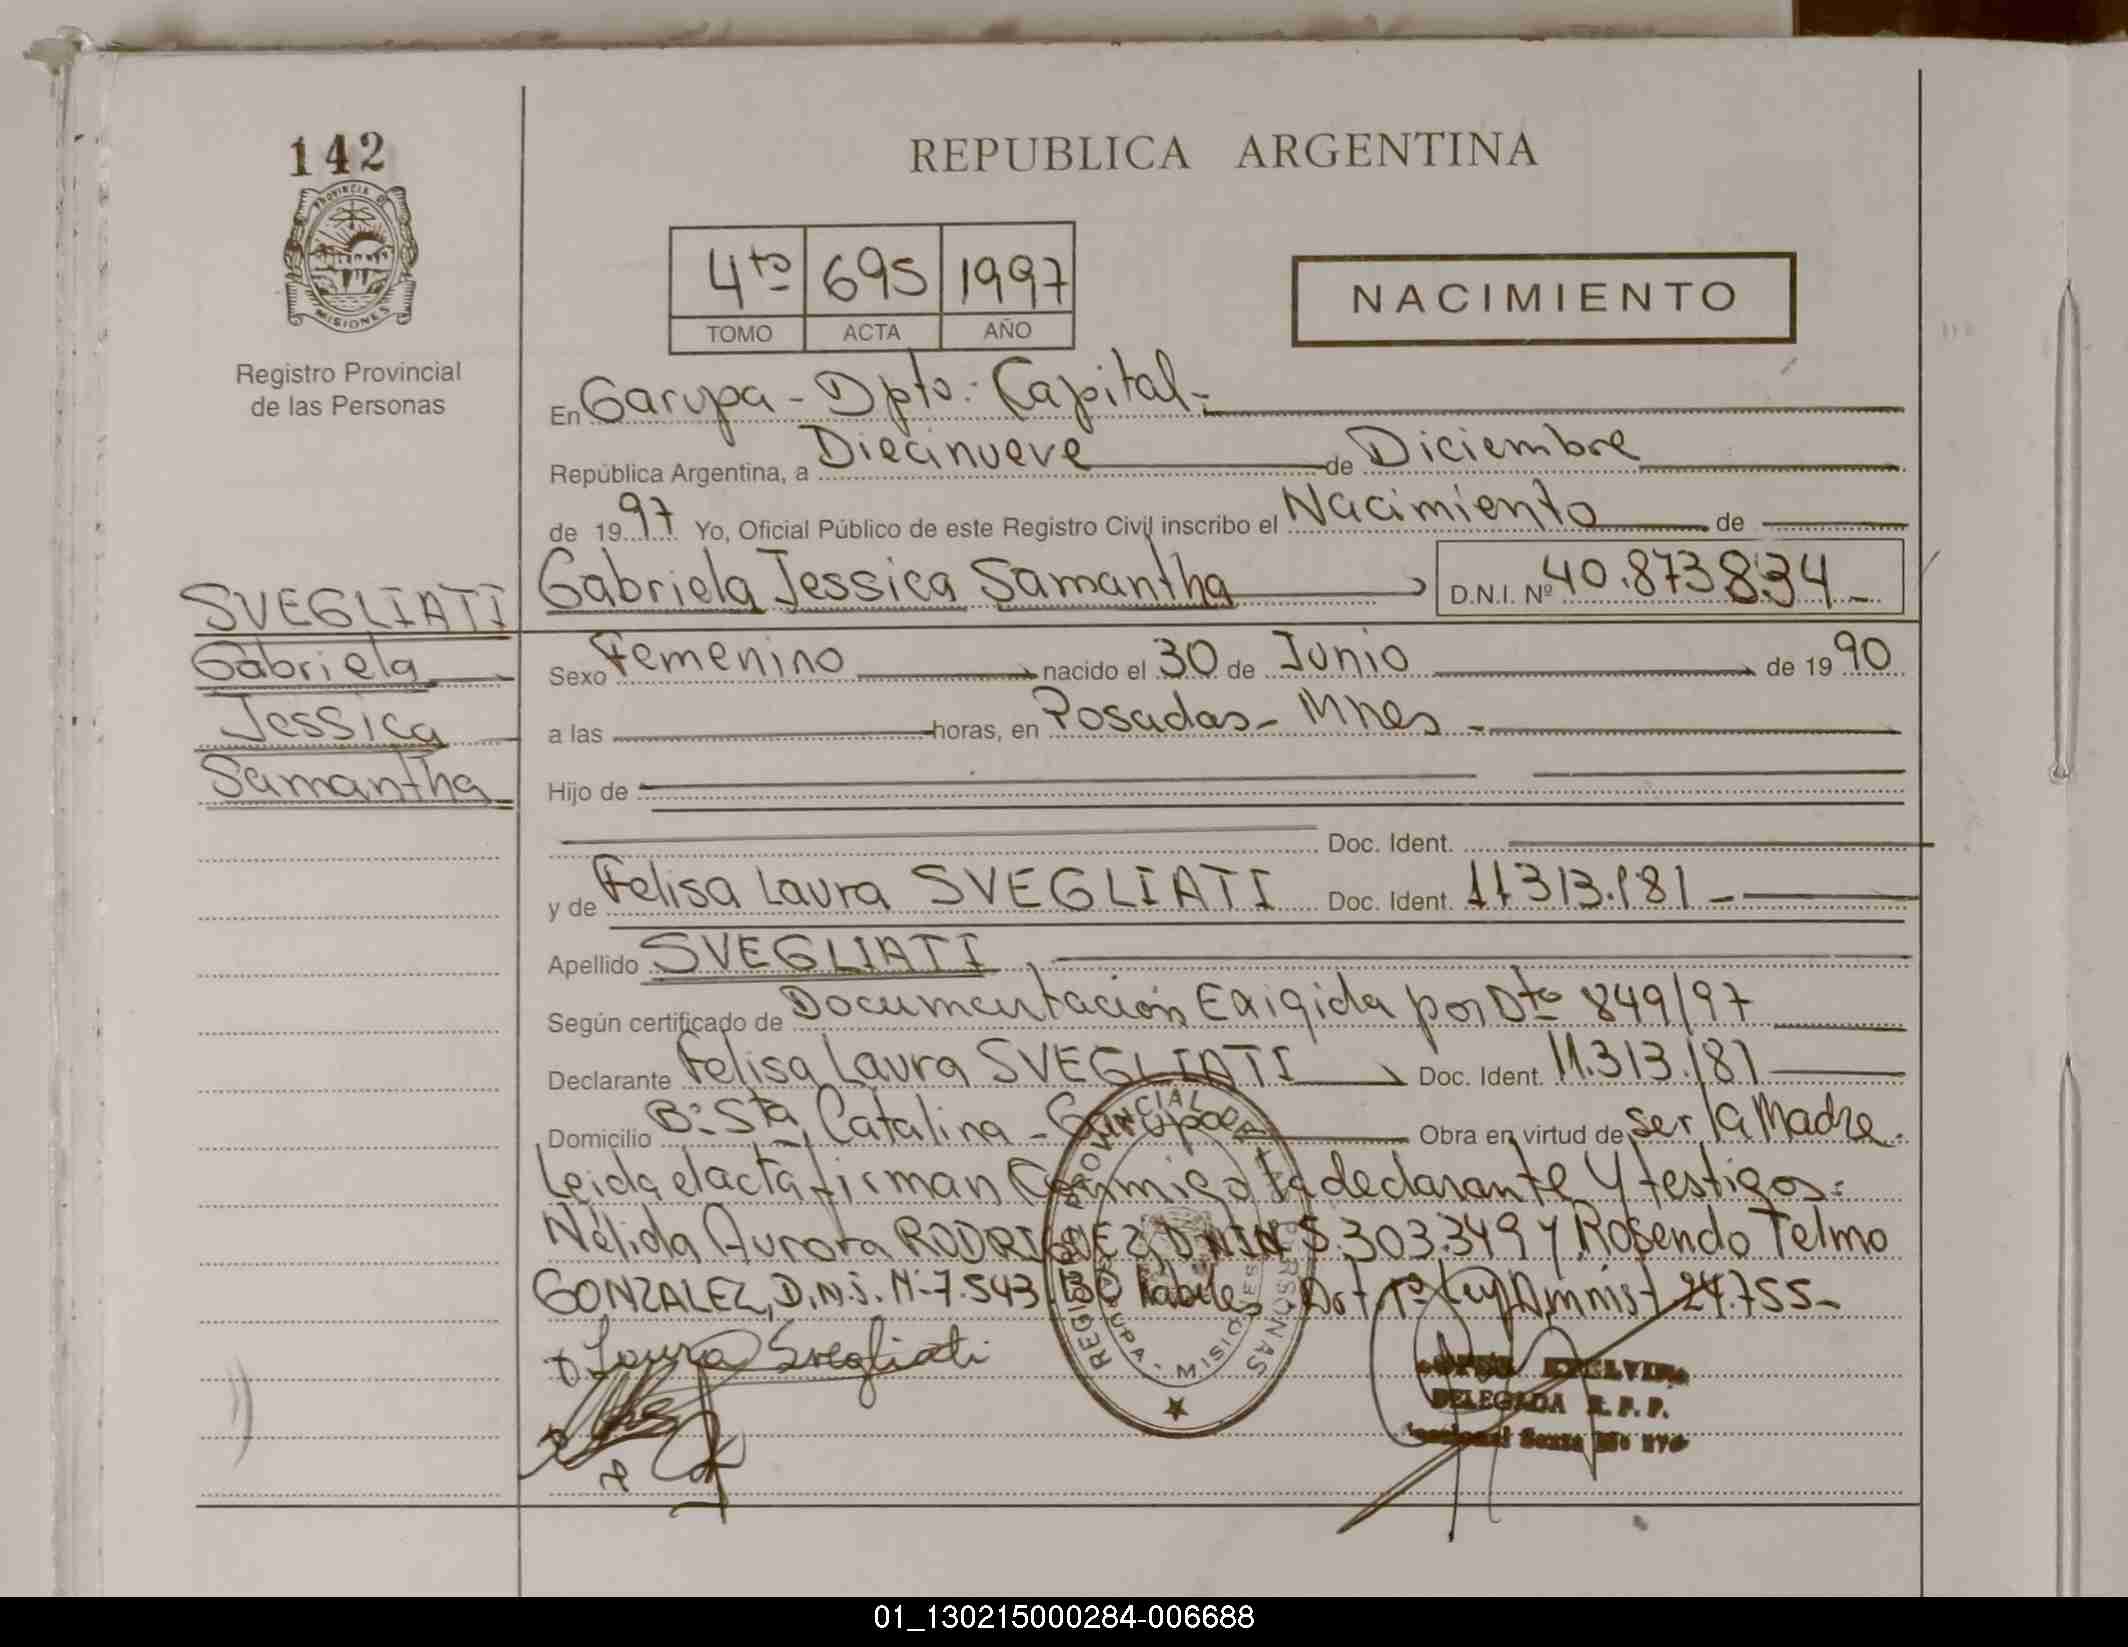 142
PROVINCIA DE
MISIONES
Registro Provincial
de las Personas
REPUBLICA ARGENTINA
4to 695 1997
TOMO ACTA AÑO
NACIMIENTO
En Garupa - Dpto: Capital.-
República Argentina, a Diecinueve de Diciembre
de 1997 Yo, Oficial Público de este Registro Civil inscribo el Nacimiento de
SVEGLIATI Gabriela Jessica Samantha D.N.I. Nº 40.873834
Gabriela Sexo Femenino nacido el 30 de Junio de 1990
Jessica a las horas, en Posadas - Mnes -
Samantha Hijo de
Doc. Ident.
y de Felisa Laura SVEGLIATI Doc. Ident. 11313.181
Apellido SVEGLIATI
Según certificado de Documentación Exigida por Dto 849/97
Declarante Felisa Laura SVEGLIATI Doc. Ident. 11.313.181
Domicilio Bº Sta Catalina - Garupa Obra en virtud de ser la Madre.
Leida el acta firman Conmigo la declarante y testigos:
Nélida Aurora RODRIGUEZ 5.303.349 y Rosendo Telmo
GONZALEZ, D.N.I. Nº 7.543.130 habiles Art 1º Ley Amnist 24.755-
Laura Svegliati
REGISTRO PROVINCIAL DE LAS PERSONAS
GARUPA - MISIONES
DELEGADA R. P. P.
01_130215000284-006688